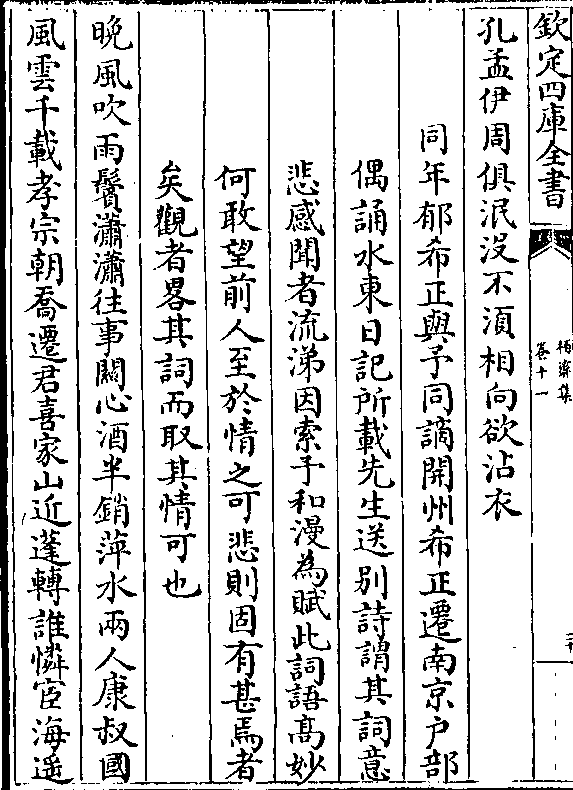 欽定四庫全書
卷十一
孔孟伊周俱泯没不須相向欲沾衣
同年郁希正與予同謫開州希正遷南京户部
偶誦水東日記所載先生送别詩謂其詞意
悲感聞者流涕因索予和漫為賦此詞語髙妙
何敢望前人至於情之可悲則固有甚焉者
矣觀者畧其詞而取其情可也
晚風吹雨鬢瀟瀟往事關心酒半銷萍水兩人康叔國
風雲千載孝宗朝喬遷君喜家山近蓬轉誰憐宦海遥